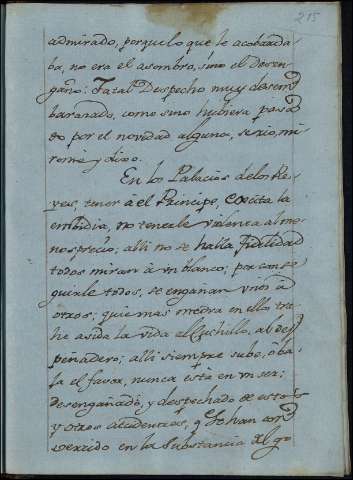 215
admirado, porque lo que le acobarda
ba, no era el asombro, sino el desen
gaño: Fatal Despecho muy desem
barazado, como sino hubiera pasa
do por el novedad alguna, serio, mi
rome y dixo.
En los Palacios delos Re
yes, tener a el Principe, Exçita la
embidia, no tenerle violenta al me
nosprecio; alli no se halla fidelidad
todos miran à vn blanco; por conse
guirle todos, se engañan vnos à
otros; quien mas medra en ello tie
ne asida la vida al Cuchillo, al des
peñadero; alli siempre sube, ò ba
la el favor, nunca està en vn ser;
desengañado, y despechado de estos
y otros accidentes, q̃ Yo han con
vertido en la Substancia